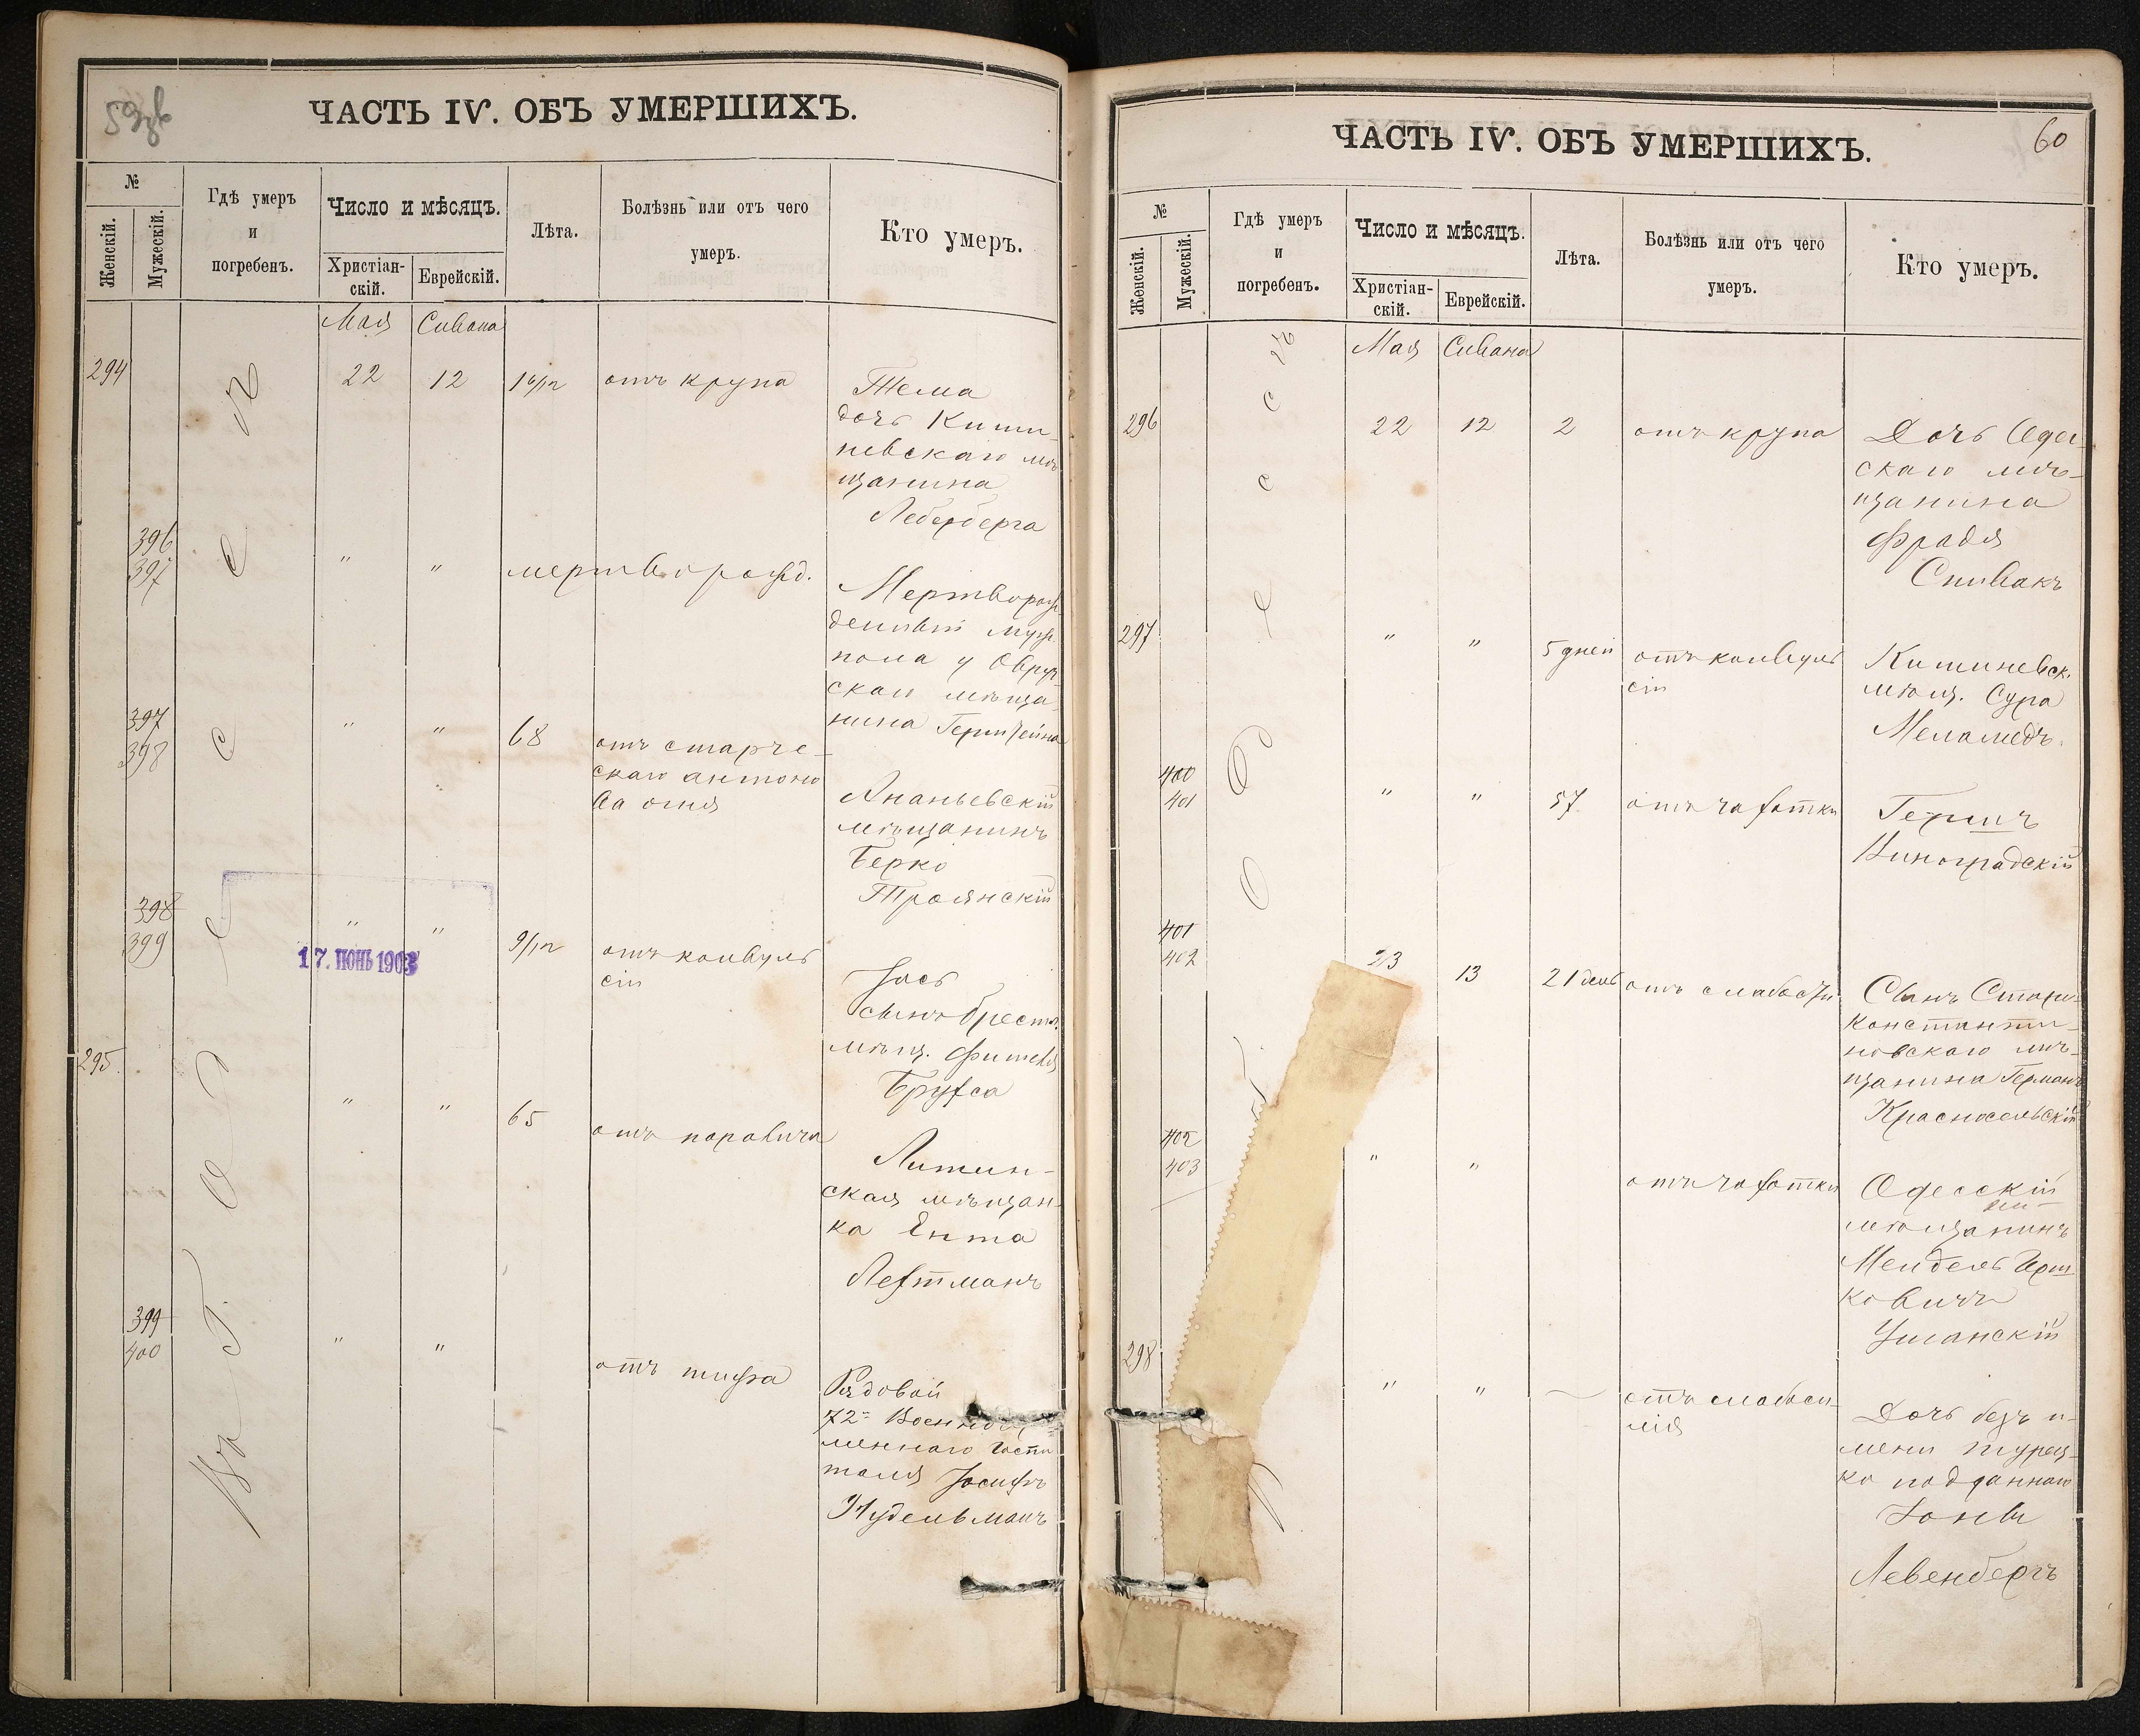 59 об
ЧАСТЬ IV. ОБЪ УМЕРШИХЪ.
№
Женскій.
Мужескій.
Гдѣ умеръ
и
погребенъ.
Число и мѣсяцъ.
Христіан-
скій.
Еврейскій.
Лѣта.
Болѣзнь или отъ чего
умеръ.
Кто умеръ.
Мая Сивана
294 22 12 1 6/12 отъ крупа
Тема
дочь Киши-
невскаго мѣ-
щанина
Леберберга
396
397 " " мертворожд.
Мертворож-
денный муж.
пола у Овруч-
скаго мѣща-
нина
397
398 " " 68 отъ старче-
скаго антоно
ва огня
Ананьевскій
мѣщанинъ
Берко
Троянскій
398
399 " " 9/12 отъ конвуль
сіи
17. ІЮНЬ 190
Іось
сынъ Брестъ.
мѣщ. Фишеля
Бруса
295. " " 65 отъ паралича
Литин-
ская мѣщан-
ка Ента
Лейтманъ
399
400 " " отъ тифа
Рядовой
72го
меннаго госпи
таля Іосифъ
Нудельманъ
Въ г. О д е с с ѣ
60
ЧАСТЬ IV. ОБЪ УМЕРШИХЪ.
№
Женскій.
Мужескій.
Гдѣ умеръ
и
погребенъ.
Число и мѣсяцъ.
Христіан-
скій.
Еврейскій.
Лѣта.
Болѣзнь или отъ чего
умеръ.
Кто умеръ.
Мая Сивана
296 22 12 2 отъ крупа
Дочь Одес-
скаго мѣ-
щанина
Фрадя
Спивакъ
297 " " 5 дней отъ конвуль
сіи
Кишиневск.
мѣщ. Сура
Меламедъ.
400
401 " " 57. отъ чахотки
Гершъ
Виноградскій
401
402 23 13 21 день отъ слабости
Сынъ Старо-
константи-
новскаго мѣ-
щанина Германъ
Красносельскій
402
403 " " отъ чахотки
Одесскій
мѣщанинъ
Мендель Герш
ковичъ
Уманскій
298 " " — отъ слабоси-
лія
Дочь безъ и-
мени турец-
ко подданнаго
Іоны
Левенбергъ